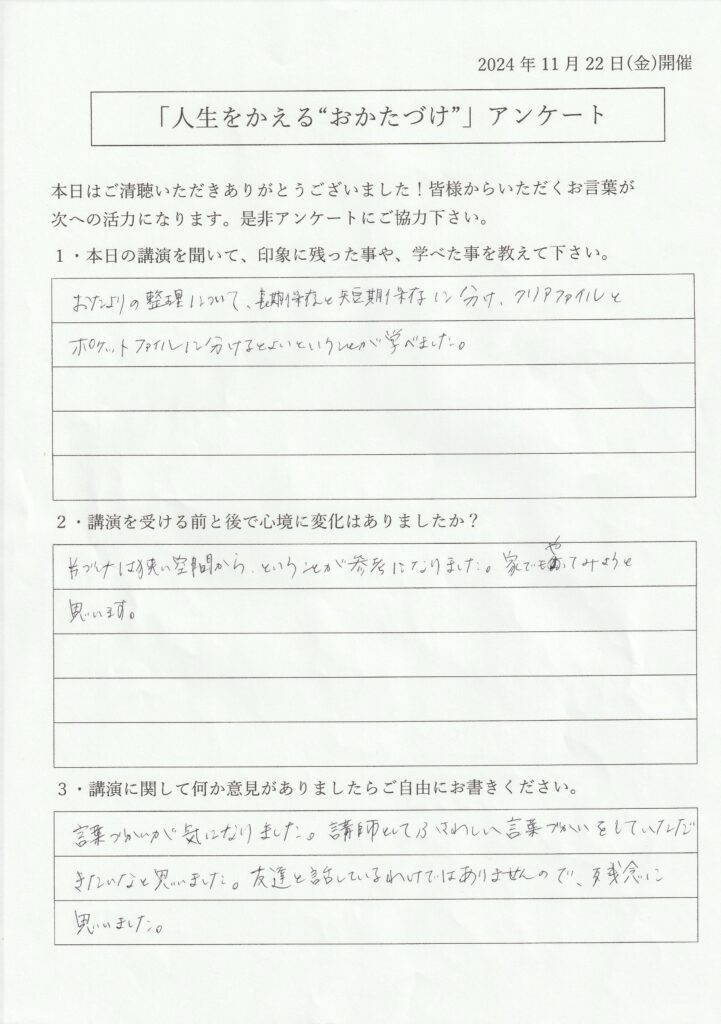 2024 年 11 月 22 日(金)開催
「人生をかえる“おかたづけ”」アンケート
本日はご清聴いただきありがとうございました！皆様からいただくお言葉が
次への活力になります。是非アンケートにご協力下さい。
１・本日の講演を聞いて、印象に残った事や、学べた事を教えて下さい。
おたよりの整理について、長期保存と短期保存に分け、クリアファイルと
ポケットファイルに分けるとよいということが学べました。
２・講演を受ける前と後で心境に変化はありましたか？
片づけは狭い空間から、ということが参考になりました。家でもやってみようと
思います。
３・講演に関して何か意見がありましたらご自由にお書きください。
言葉づかいが気になりました。講師としてふさわしい言葉づかいをしていただ
きたいなと思いました。友達と話しているわけではありませんので、残念に
思いました。